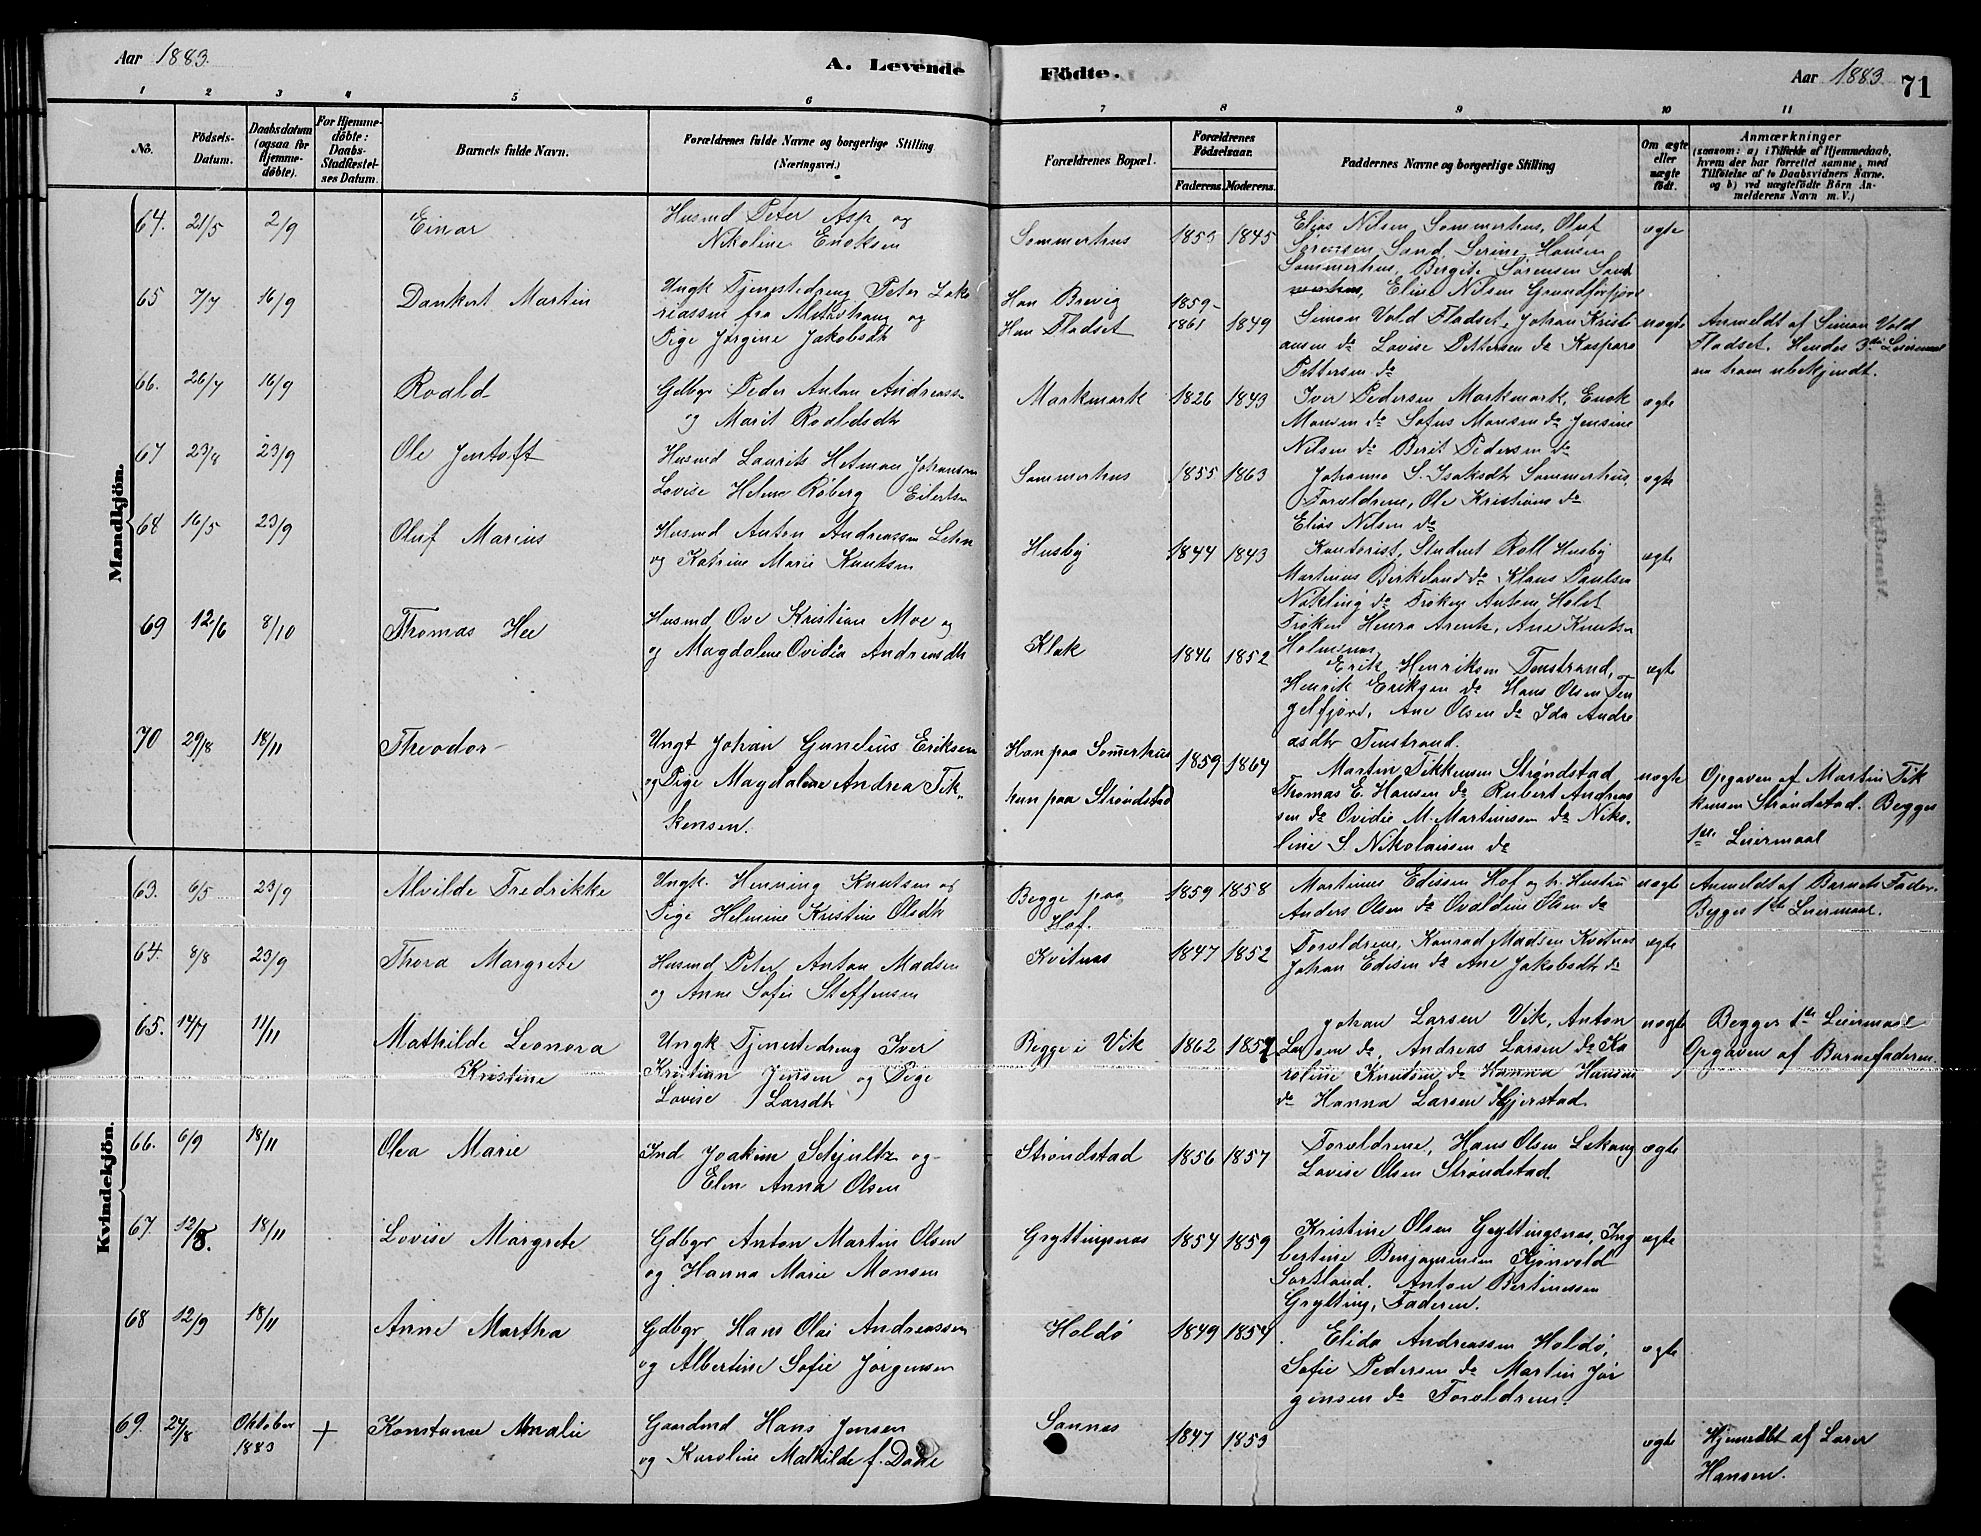 Aar 1883.
A. Levende Födte.
Aar 1883. 71
1 2 3 4 5 6 7 8 9 10 11
No.
Födsels-Datum.
Daabsdatum (ogsaa for Hjemme-döbte).
For Hjemme-döbte: Daabs-Stadfæstel-ses Datum.
Barnets fulde Navn.
Forældrenes fulde Navne og borgerlige Stilling (Næringsvei.)
Forældrenes Bopæl.
Forældrenes Födselsaar.
Faderens. Moderens.
Faddernes Navne og borgerlige Stilling
Om ægte eller uægte født.
Anmærkninger
(saasom: a) i Tilfælde af Hjemmedaab,
hvem der har forrettet samme, med
Tilføielse af to Daabsvidners Navne.
og b) ved uægtefödte Börn An-
melderens Navn m. V.)
Mandkjön.
64. 21/5 2/9 Einar
Husmd Peter Asp og
Nikoline Enoksen
Sommerhus 1853 1845
Elias Nilsen Sommerhus, Oluf
Sørensen Sand, Serine Hansen
Sommerhus, Bergite Sørensen Sand
Eline Nilsen Grundførfjord
ægte
65 7/7 16/9 Dankert Martin
Ungk Tjenestedreng Peter Zaka
riassen fra Alstadhaug og
Pige Jørgine Jakobsdtr
Han Brevig
Hun Fladset
1859-
1861 1849
Simon Vold Fladset, Johan Kristi
ansen do Lovise Pettersen do Kaspara
Pettersen do
uægte
Anmeldt af Simon Vold
Fladset. Hendes 3die Leiermaal
om ham ubekjendt.
66. 26/7 16/9 Roald
Gdbgr Peder Anton Andreass.
og Marit Roaldsdtr
Markmark 1826 1843
Iver Pedersen Markmark, Enok
Monsen do Sofus Monsen do Jensine
Nilsen do Berit Pedersen do
ægte
67 23/8 23/9 Ole Jentoft
Husmd Laurits Hetman Johansen
Lovise Helene Røberg Eilertsen
Sommerhus 1855 1863
Johanna S. Isaksdtr Sommerhus,
Forældrene, Ole Kristians do
Elias Nilsen do
ægte
68 16/5 23/9 Oluf Marius
Husmd Anton Andreassen Lehn
og Katrine Marie Knutsen
Husby 1844 1843
Kontorist, Student Roll Husby
Martinus Birkeland do Klaus Paulsen
Nøkling do Frøken Anten Holst
Frøken Henra Arentz, Ane Knutsen
Holmsnes
ægte
69 12/6 8/10 Thomas Hee
Husmd Ove Kristian Moe og
og Magdalene Ovidia Andreasdtr
Klak 1846 1852
Erik Henriksen Tenstrand,
Henrik Eriksen do Hans Olsen Ten
gelfjord, Ane Olsen do Ida Andre
asdtr Tenstrand.
ægte
70 29/8 18/11 Theodor
Ungk Johan Gunelius Eriksen
og Pige Magdalene Andrea Tik-
kensen.
Han paa Somerhus
hun paa Strøndstad
1859 1864
Martin Tikkensen Strøndstad
Thomas E Hansen do Rubert Andreas
sen do Ovidie M. Martinsen do Niko-
line S. Nikolaisen do
uægte
Opgaven af Martin Tik
kensen Strøndstad. Begges
1ste Leiermaal
Kvindekjön.
63. 6/5 23/9 Alvilde Fredrikke
Ungk. Henning Knutsen og
Pige Helmine Kristine Olsdtr
Begge paa
Hof.
1859 1858
Martinus Edissen Hof og h. Hustru
Anders Olsen do Ovaldine Olsen do
uægte
Anmeldt af Barnets Fader.
Begges 1ste Leiermaal.
64. 8/8 23/9 Thora Margrete
Husmd Peter Anton Madsen
og Anne Sofie Steffensen
Kvitnes 1847 1852
Forældrene, Konrad Madsen Kvitnes
Johan Edisen do Ane Jakobsdtr do
ægte
65. 14/7 11/11 Mathilde Leonora
Kristine
Ungk Tjenestedreng Iver
Kristian Jensen og Pige
Lovise Larsdtr
Begge i Vik 1862 1857
Johan Larsen Vik, Anton
Larsen do, Andreas Larsen do Ka
roline Knudsen do Hanna Hansen
do Hanna Larsen Kjerstad.
uægte
Begges 1ste Leiermaal
Opgaven af Barnefaderen.
66. 6/9 18/11 Olea Marie
Ind Joakim Schjultz og
Elen Anna Olsen
Strøndstad 1856 1857
Forældrene, Hans Olsen Lekang
Lovise Olsen Strøndstad
ægte
67. 12/8. 18/11 Lovise Margrete
Gdbgr Anton Martin Olsen
og Hanna Marie Monsen
Gryttingsnes 1854 1859
Kristine Olsen Gryttingsnes, Ing
bertine Benjaminsen Kjønvold
Sortland. Anton Bertinussen
Grytting, Faderen.
ægte
68 12/9 18/11 Anne Martha
Gdbgr Hans Olai Andreassen
og Albertine Sofie Jørgensen
Holdø 1849 1854
Elida Andreassen Holdø,
Sofie Pedersen do Martin Jør
gensen do Forældrene.
ægte
69. 24/8 Oktober
1883 + Konstanse Amalie
Gaardmd Hans Jensen
og Karoline Mathilde f. Dahl
Sannes
1847 1853
ægte
Hjemedbt af Lærer
Hansen.